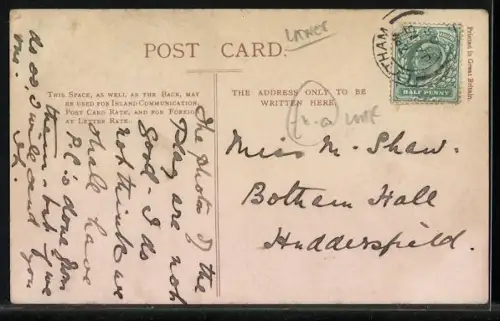 POST CARD.
THIS SPACE, AS WELL AS THE BACK, MAY
BE USED FOR INLAND COMMUNICATION
POST CARD RATE, AND FOR FOREIGN
AT LETTER RATE.
THE ADDRESS ONLY TO BE
WRITTEN HERE.
Printed in Great Britain.
HALF PENNY
Miss M. Shaw.
Botham Hall
Huddersfield.
The photos of the
Play are not
Good - I do
not think we
shall have
P.C.s done from
them - but if we
do so, I will send you
one.